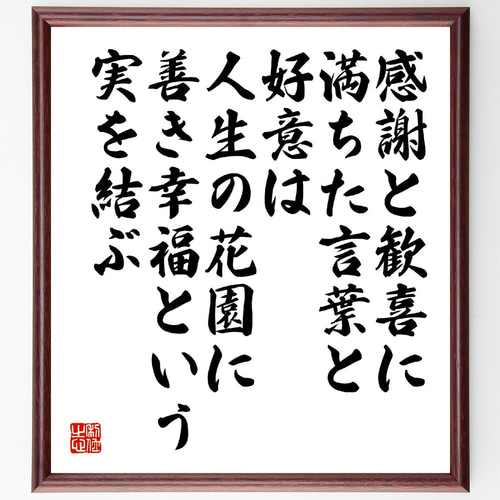 感謝と歓喜に
満ちた言葉と
好意は
人生の花園に
善き幸福という
実を結ぶ